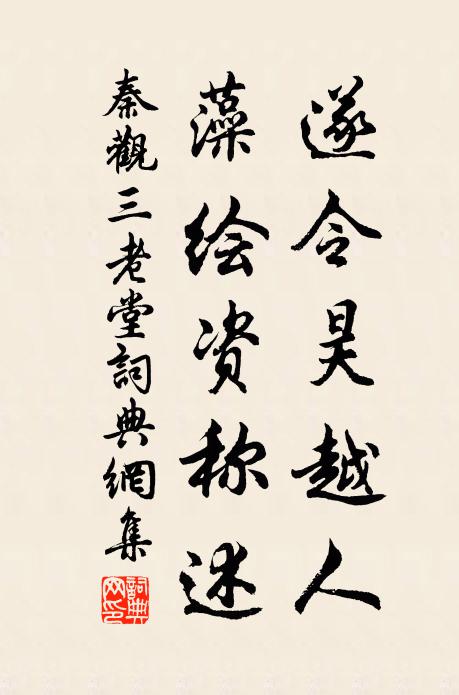 遂令昊越人
藻绘资称述
秦觀三老堂詞典網集
詞典网印